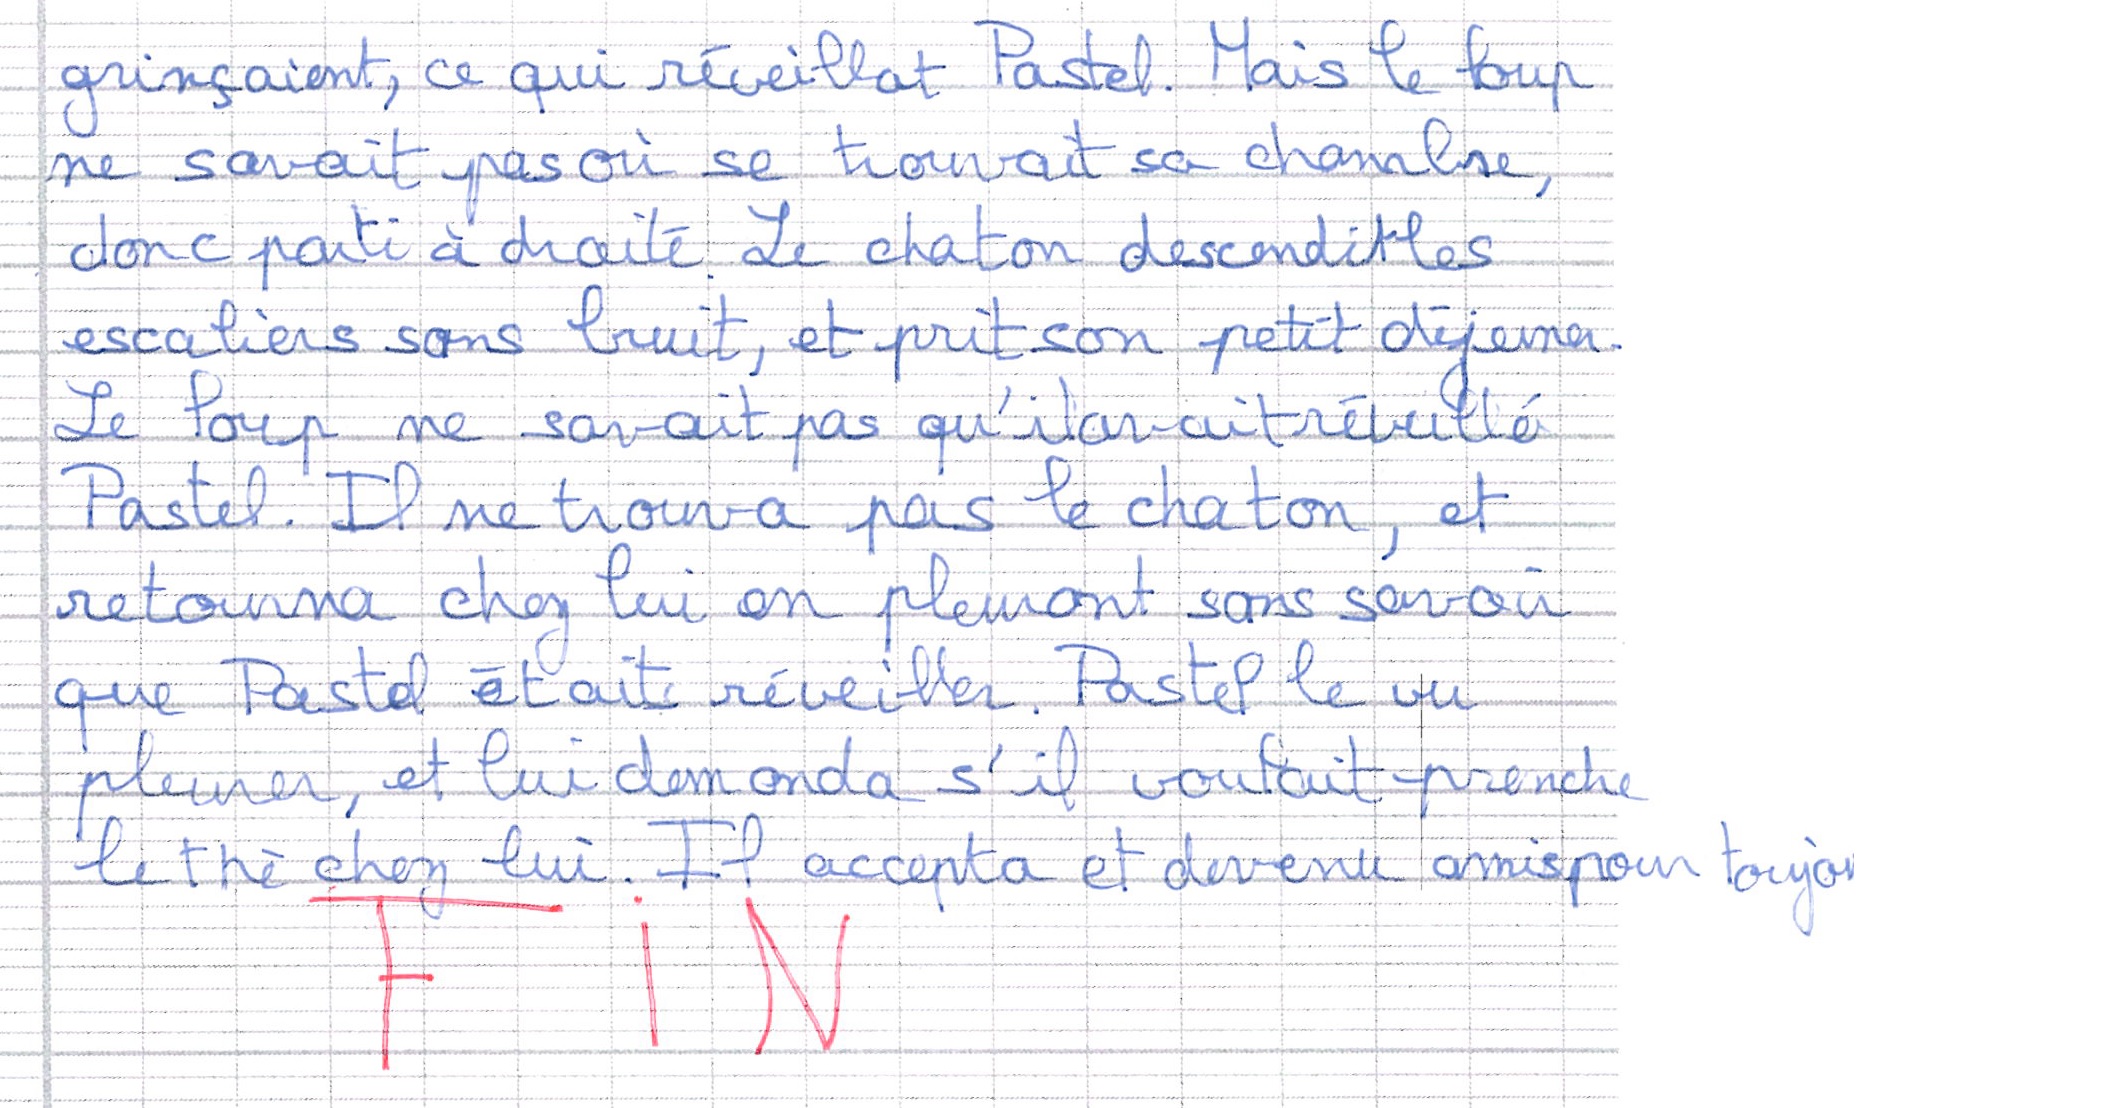 grinçaient, ce qui réveillat Pastel. Mais le loup
ne savait pas où se trouvait sa chambre,
donc parti à droite. Le chaton descendit les
escaliers sans bruit, et prit son petit déjeuner.
Le loup ne savait pas qu'il avait réveillé
Pastel. Il ne trouva pas le chaton, et
retourna chez lui en pleurant sans savoir
que Pastel était réveiller. Pastel le vu
pleurer, et lui demanda s'il voulait prendre
le thé chez lui. Il accepta et devenu amis pour toujou
FiN